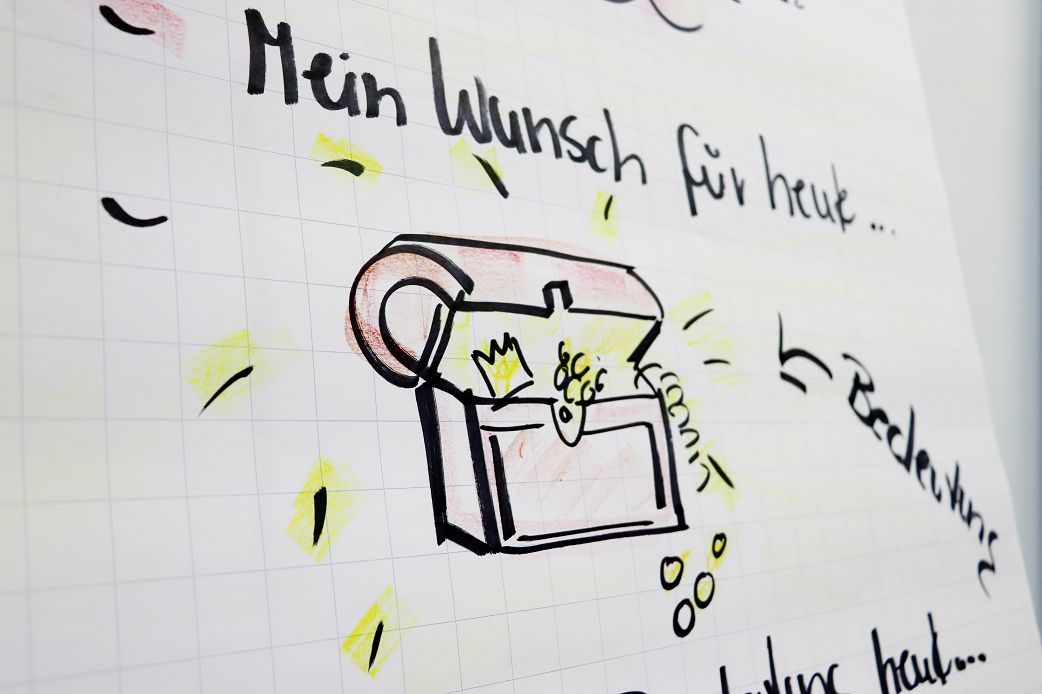 Mein Wunsch für heute...
Bedeutung
heute...